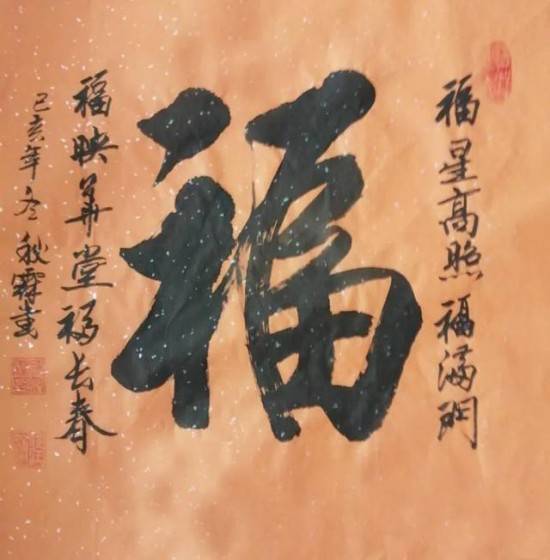 福星高照福满门
福
福映华堂福长春
己亥年冬秋霖书